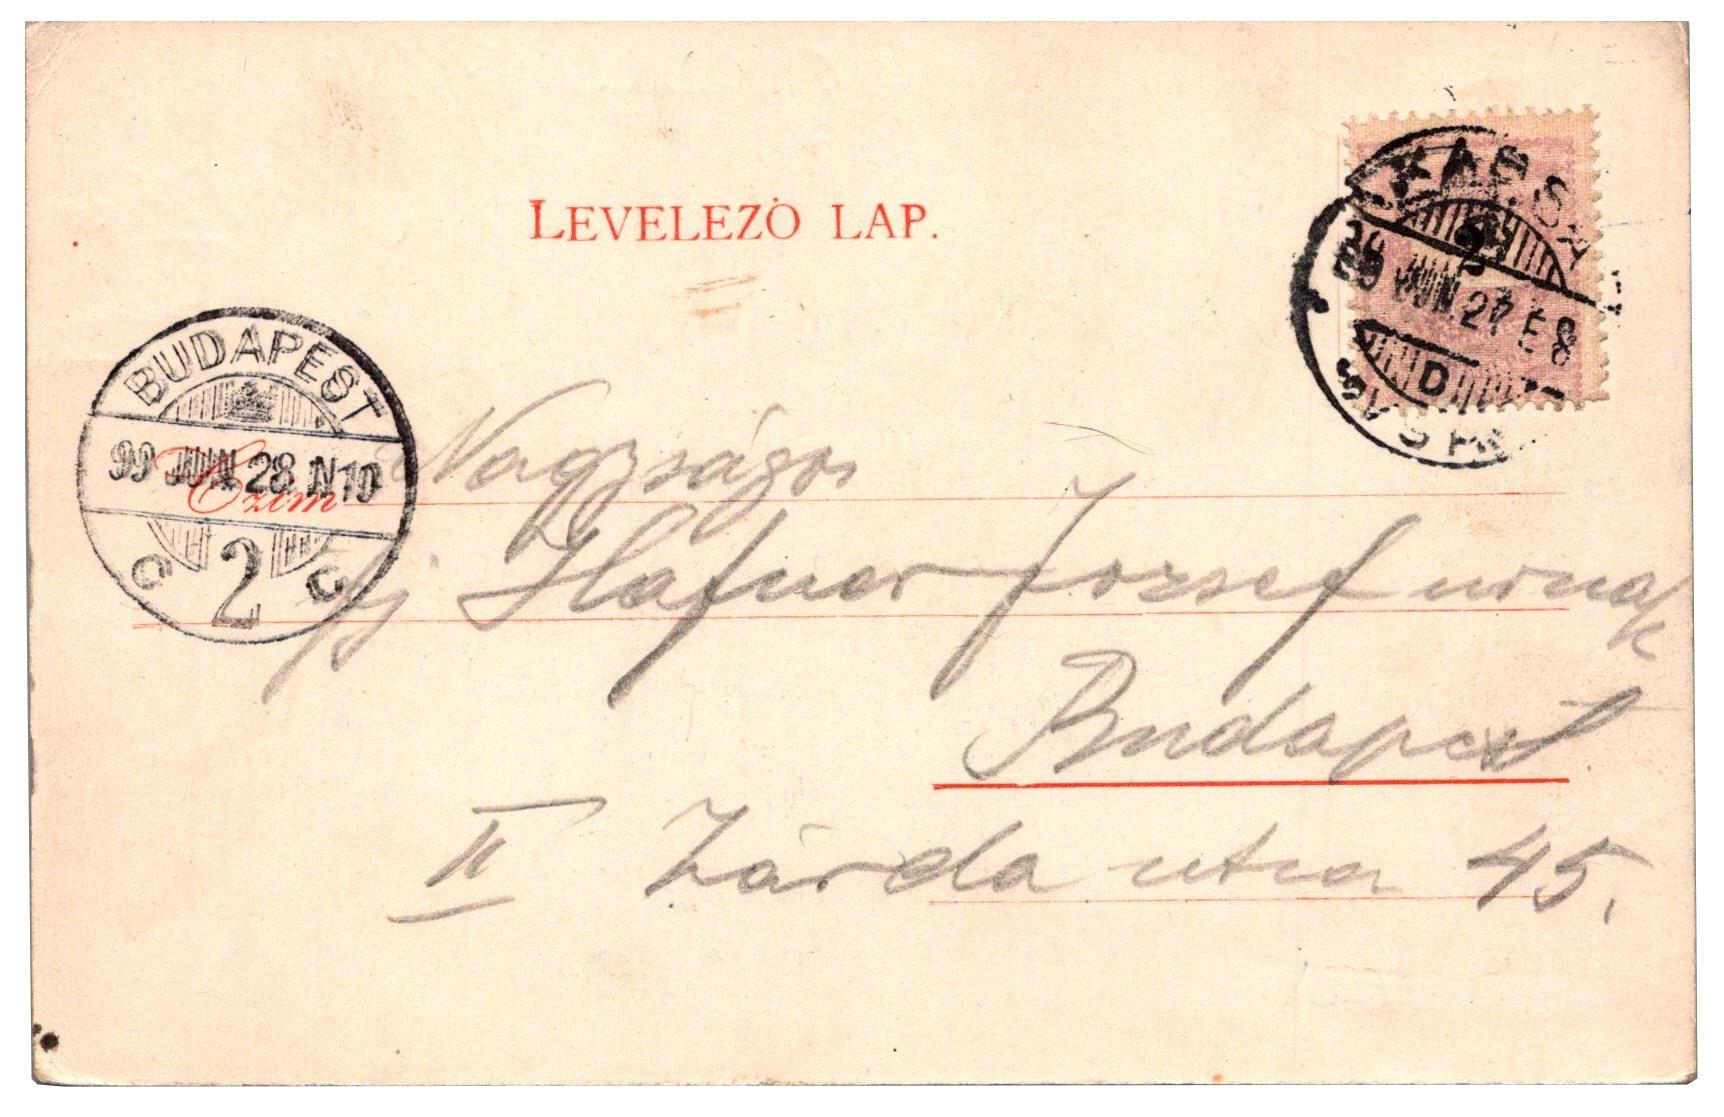 LEVELEZŐ LAP.
KASSA
99 JUN. 27 E 8
D
BUDAPEST
99 JUN 28 N10
2
Czim
Nagyságos
ifj Hafner József urnak
Budapest
II Zárda utca 45.